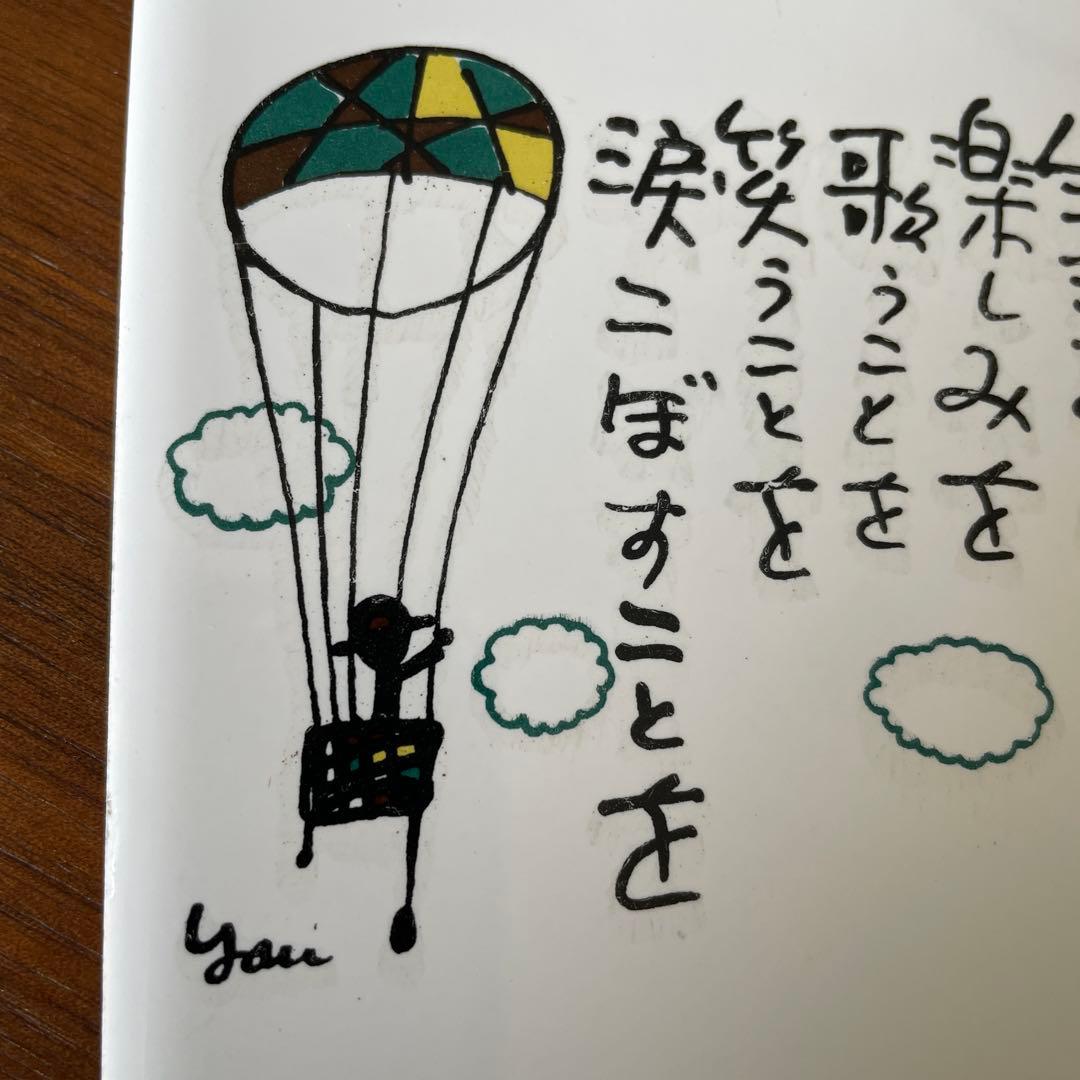 楽しみを
歌うことを
笑うことを
涙こぼすことを